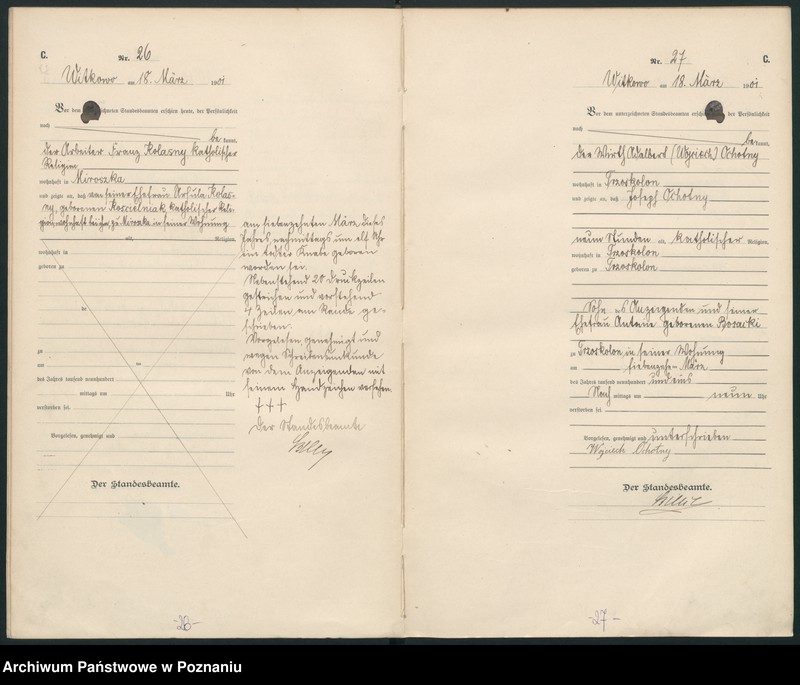 C.
Nr. 26
Witkowo am 18. März 1901
Vor dem unterzeichneten Standesbeamten erschien heute, der Persönlichkeit
nach be kannt,
der Arbeiter Franz Kolasny katholischer
Religion
wohnhaft in Miroszka
und zeigte an, daß von seiner Ehefrau Ursula Kolas-
ny, geborenen Koscielniak, katholischer Reli-
gion, wohnhaft bei ihm, zu Miroszka in seiner Wohnung
alt, Religion,
wohnhaft in
geboren zu
zu
am
des Jahres tausend neunhundert
mittags um Uhr
verstorben sei.
Vorgelesen, genehmigt und
Der Standesbeamte.
am siebenzehnten März dieses
Jahres nachmittags um elf Uhr
ein todter Knabe geboren
worden sei.
Nebenstehend 20 Druckzeilen
gestrichen und vorstehend
4 Zeilen am Rande ge-
schrieben.
Vorgelesen genehmigt und
wegen Schreibensunkunde
von dem Anzeigenden mit
seinem Handzeichen versehen.
+++
Der Standesbeamte
-26-
Nr. 27
C.
Witkowo am 18. März 1901
Vor dem unterzeichneten Standesbeamten erschien heute, der Persönlichkeit
nach be kannt,
der Wirth Adalbert (Wojciech) Ochotny
wohnhaft in Trzoskolon
und zeigte an, daß Joseph Ochotny
neun Stunden alt, katholischer Religion,
wohnhaft in Trzoskolon
geboren zu Trzoskolon
Sohn des Anzeigenden und seiner
Ehefrau Antonie geborenen Bosacki
zu Trzoskolon, in seiner Wohnung
am siebenzehn März
des Jahres tausend neunhundert und eins
Nach mittags um neun Uhr
verstorben sei.
Vorgelesen, genehmigt und unterschrieben
Wojciech Ochotny
Der Standesbeamte.
-27-
Archiwum Państwowe w Poznaniu